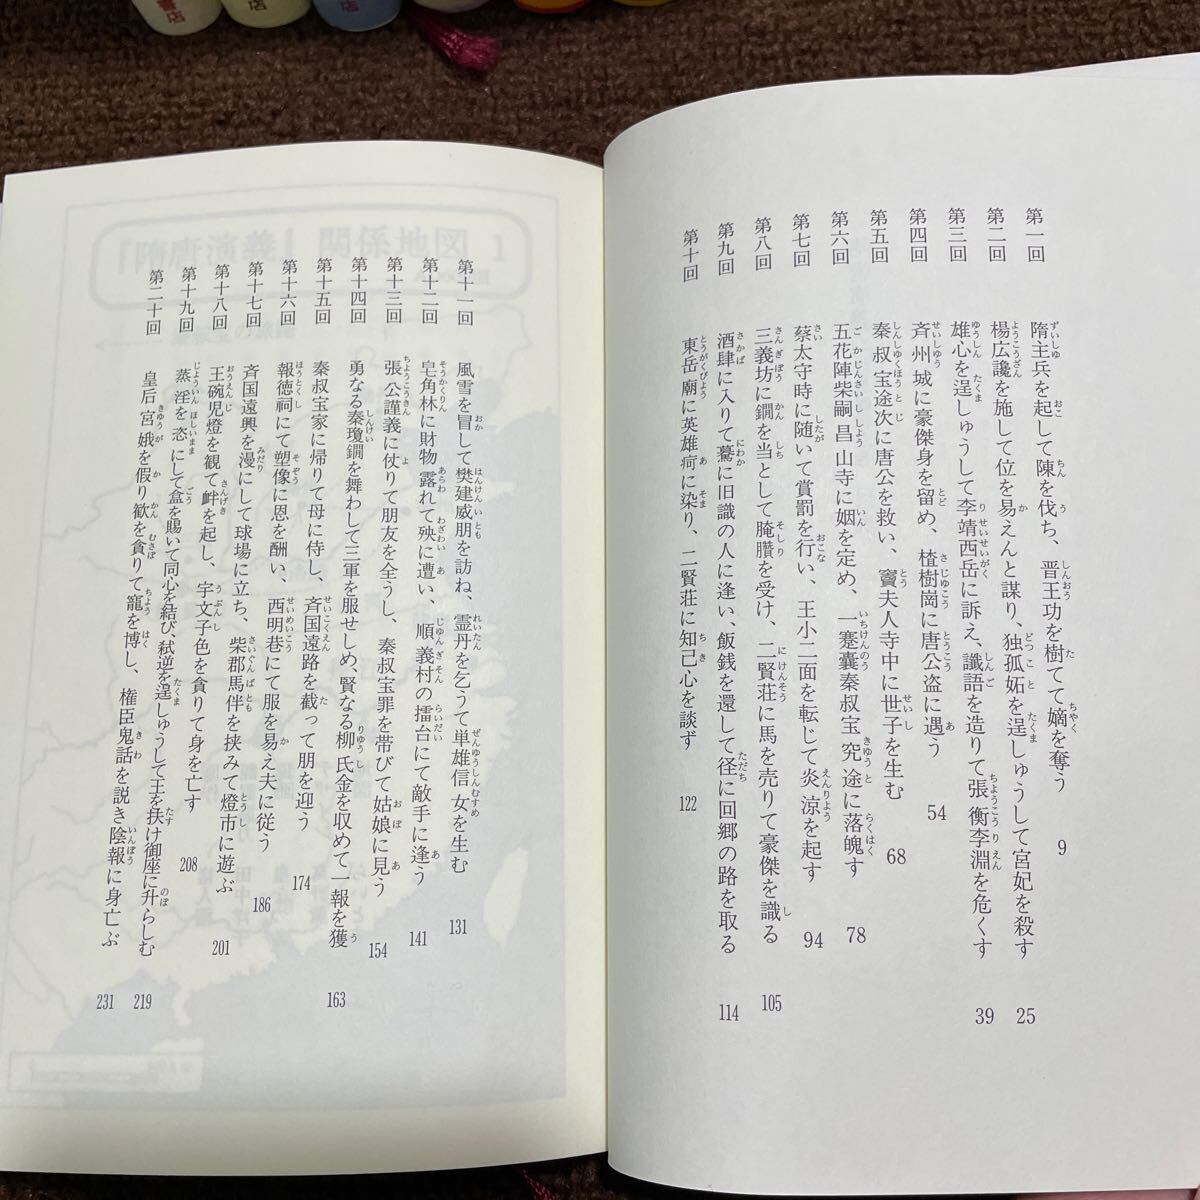 第一回　隋主兵を起して陳を伐ち、晋王功を樹てて嫡を奪う　9
第二回　楊広讒を施して位を易えんと謀り、独孤妬を逞しゅうして宮妃を殺す　25
第三回　雄心を逞しゅうして李靖西岳に訴え、讖語を造りて張衡李淵を危くす　39
第四回　斉州城に豪傑身を留め、楂樹崗に唐公盗に遇う　54
第五回　秦叔宝途次に唐公を救い、竇夫人寺中に世子を生む　68
第六回　五花陣柴嗣昌山寺に姻を定め、一蹇囊秦叔宝究途に落魄す　78
第七回　蔡太守時に随いて賞罰を行い、王小二面を転じて炎涼を起す　94
第八回　三義坊に鐗を当として腌臢を受け、二賢荘に馬を売りて豪傑を識る　105
第九回　酒肆に入りて驀に旧識の人に逢い、飯銭を還して径に回郷の路を取る　114
第十回　東岳廟に英雄疴に染り、二賢荘に知己心を談ず　122
第十一回　風雪を冒して樊建威朋を訪ね、霊丹を乞うて単雄信女を生む　131
第十二回　皂角林に財物露れて殃に遭い、順義村の擂台にて敵手に逢う　141
第十三回　張公謹義に仗りて朋友を全うし、秦叔宝罪を帯びて姑娘に見う　154
第十四回　勇なる秦瓊鐗を舞わして三軍を服せしめ、賢なる柳氏金を収めて一報を獲　163
第十五回　秦叔宝家に帰りて母に侍し、斉国遠路を截って朋を迎う　174
第十六回　報徳祠にて塑像に恩を酬い、西明巷にて服を易え夫に従う　186
第十七回　斉国遠興を漫にして球場に立ち、柴郡馬伴を挟みて燈市に遊ぶ　201
第十八回　王碗児燈を観て衅を起し、宇文子色を貪りて身を亡す　208
第十九回　蒸淫を恣にして盒を賜いて同心を結び、弑逆を逞しゅうして王を扶け御座に升らしむ　219
第二十回　皇后宮娥を假り歓を貪りて寵を博し、権臣鬼話を説き陰報に身亡ぶ　231
「隋唐演義」関係地図 1